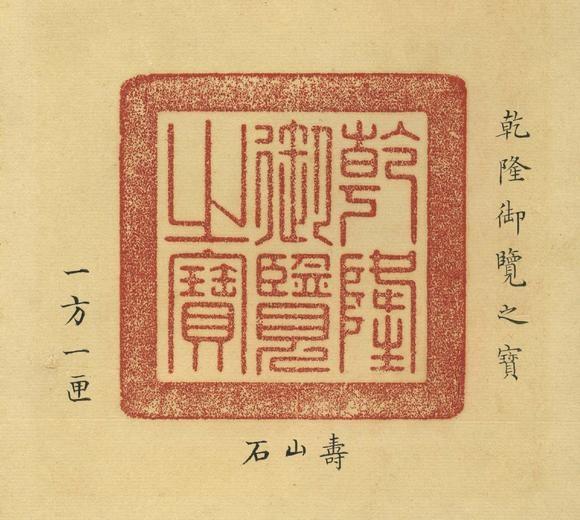 乾隆御覽之寶
乾隆
御覽
之寶
壽山石
一方一匣